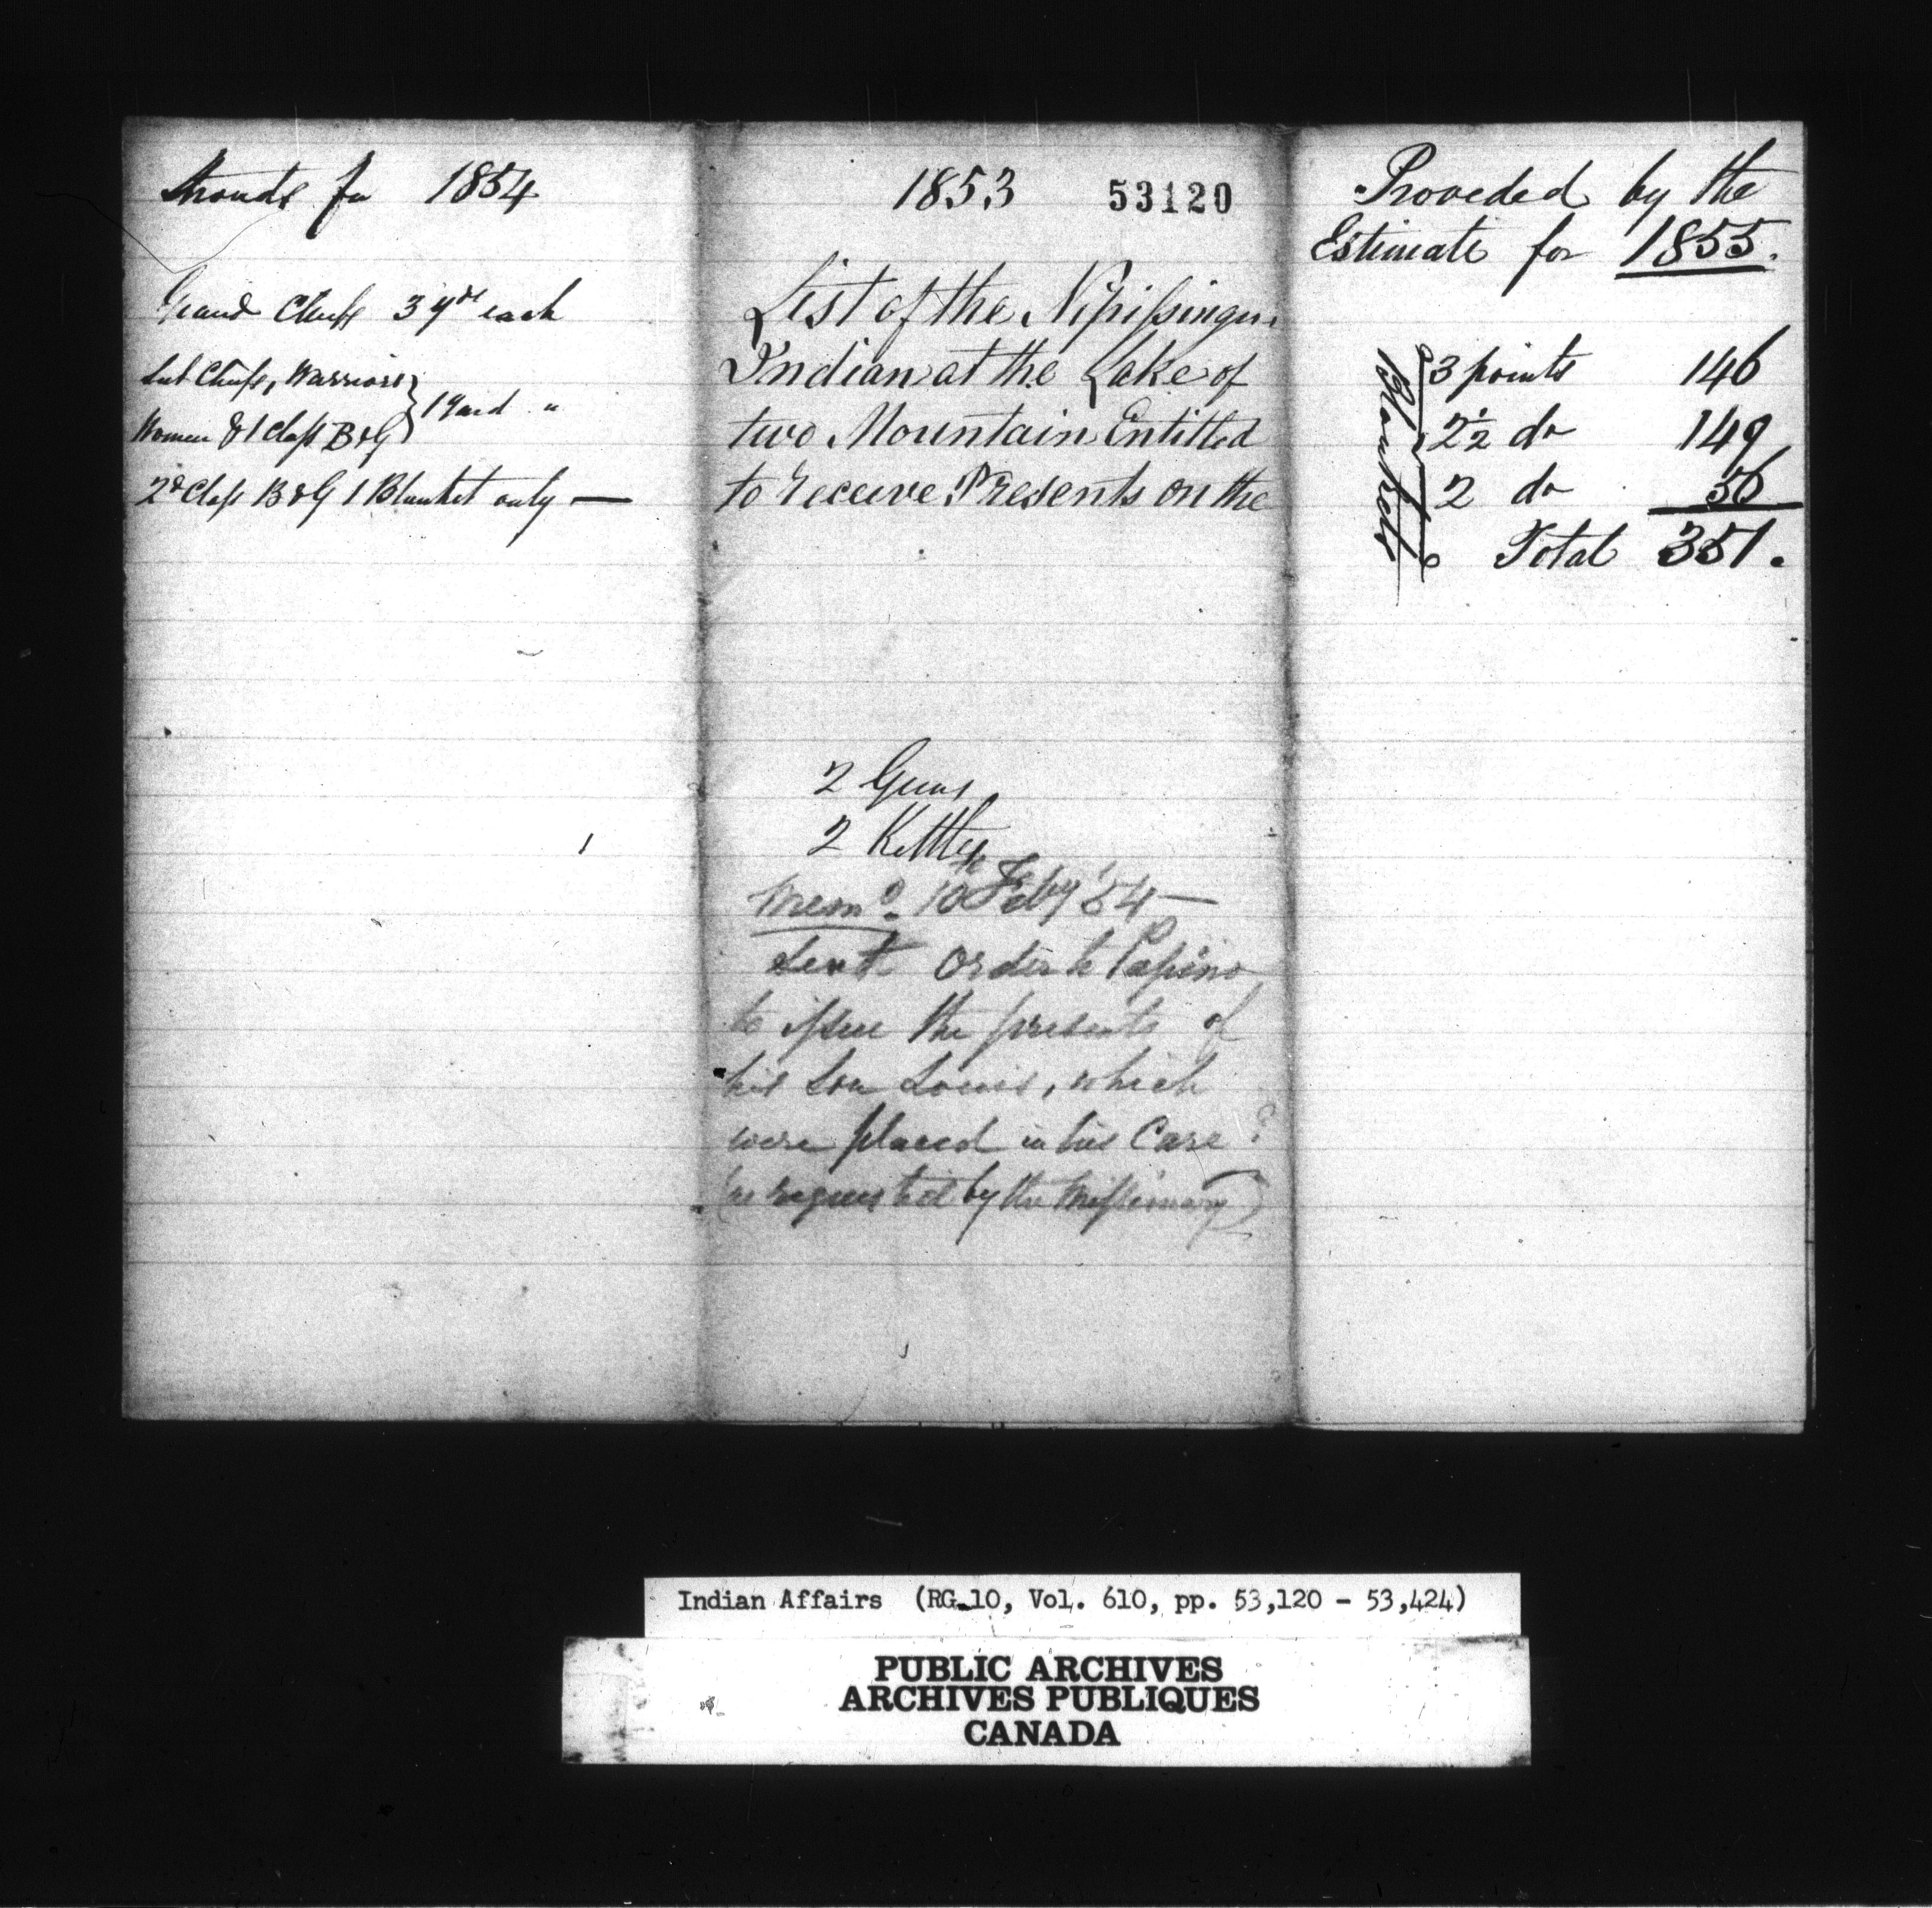 Strouds for 1854
Grand Chiefs 3 yds each
Sub Chiefs, Warriors
Women & 1 Class B & G } 1 Yard "
2d Class B & G 1 Blanket only —
1853 53120
List of the Nipissingue
Indian at the Lake of
two Mountain Entitled
to receive Presents on the
2 Guns
2 Kettles
Memo. 10th Feby '54 —
Sent order to Papino
to issue the presents of
his Son Louis, which
were placed in his Care
(as requested by the Missionary)
Proveded by the
Estimate for 1855.
Blankets
3 points 146
2½ do 149
2 do 56
Total 351.
Indian Affairs (RG 10, Vol. 610, pp. 53,120 - 53,424)
PUBLIC ARCHIVES
ARCHIVES PUBLIQUES
CANADA